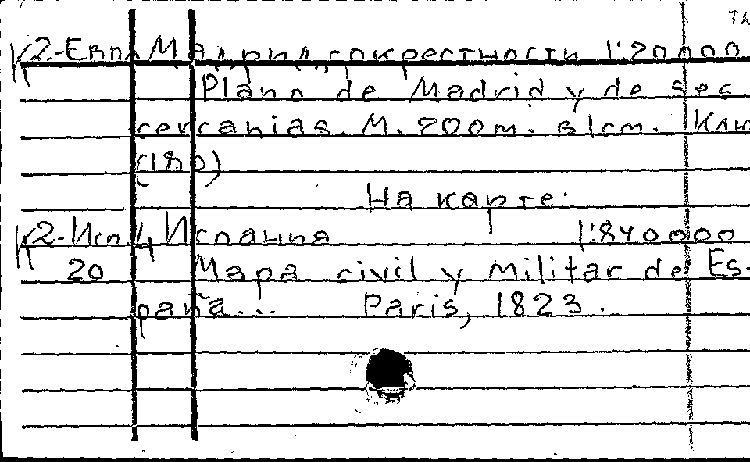 К2-Евп Мадрид, окрестности 1:20000
Plano de Madrid y de ses
cercanias. М. 200m. в 1cm. Клю
(180)
На карте:
К2-Исп. 4 Испания 1:840000
20 Mapa civil y militar de Es-
paña... Paris, 1823.